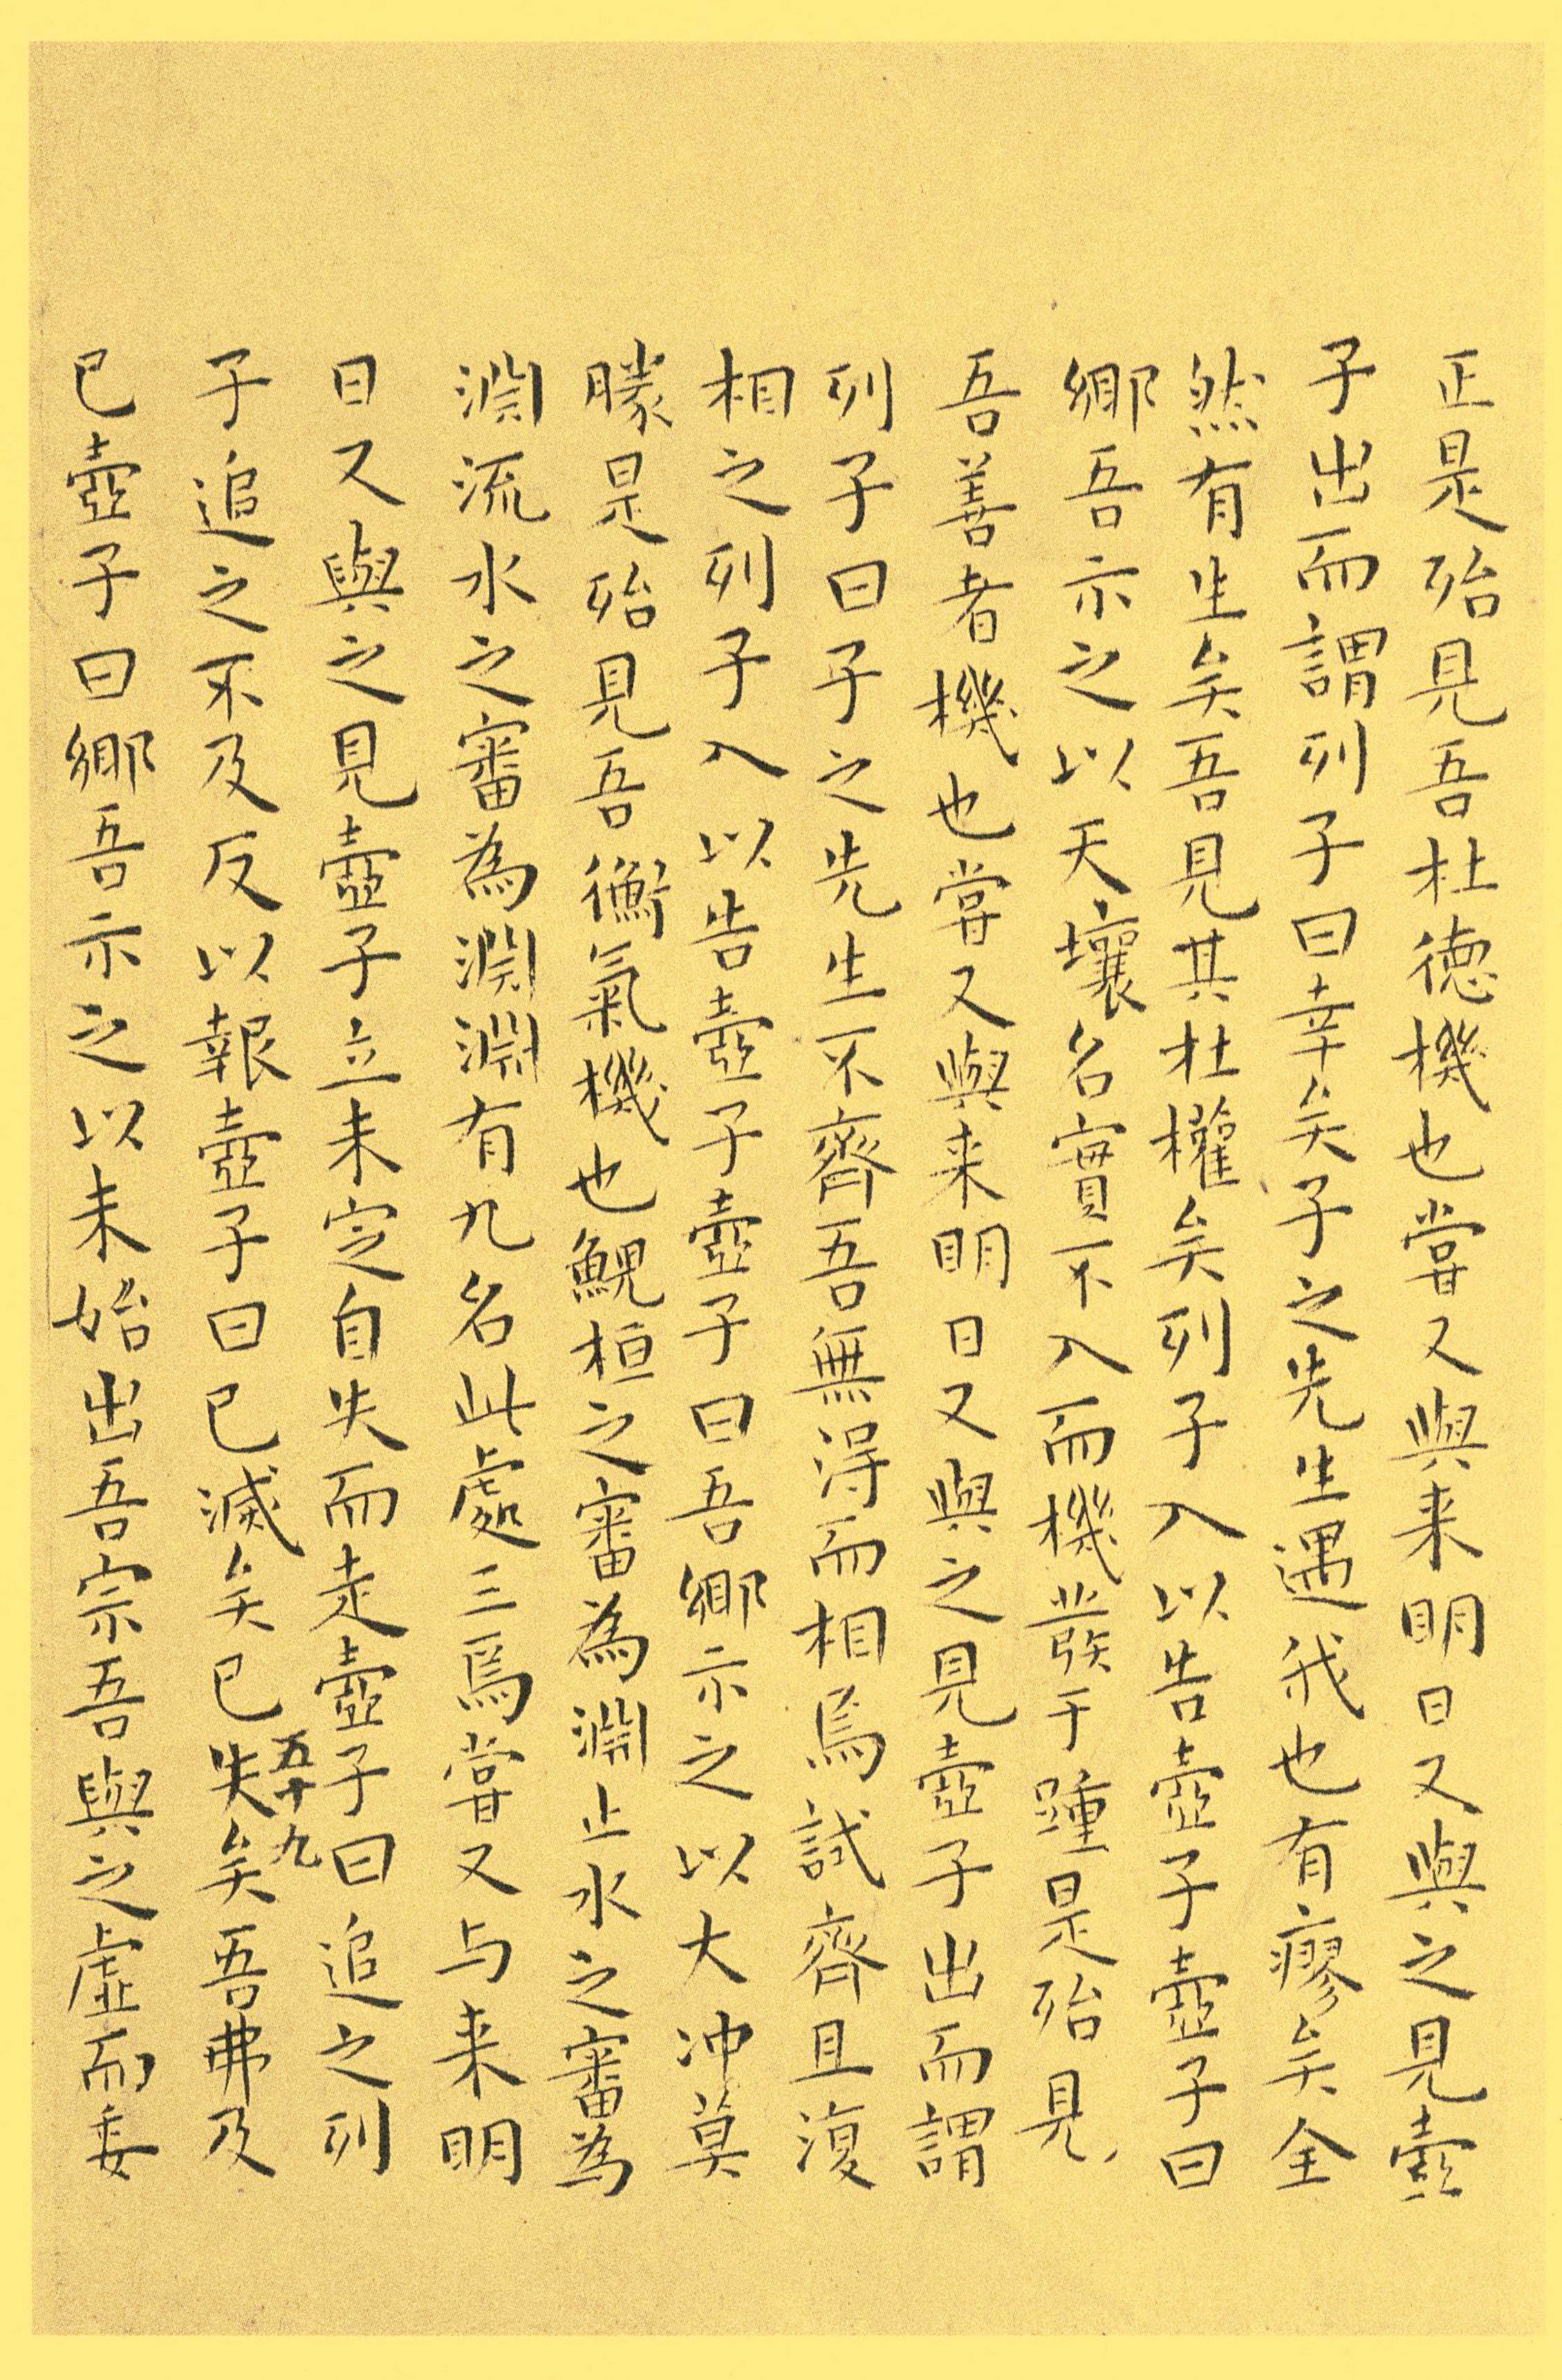 正是殆見吾杜德機也嘗又與来明日又與之見壺
子出而謂列子曰幸矣子之先生遇我也有瘳矣全
然有生矣吾見其杜權矣列子入以告壺子壺子曰
鄉吾示之以天壤名實不入而機發于踵是殆見
吾善者機也嘗又與来明日又與之見壺子出而謂
列子曰子之先生不齊吾無得而相焉試齊且復
相之列子入以告壺子壺子曰吾鄉示之以大冲莫
勝是殆見吾衡氣機也鯢桓之審為淵止水之審為
淵流水之審為淵淵有九名此處三焉嘗又与来明
日又與之見壺子立未定自失而走壺子曰追之列
子追之不及反以報壺子曰已滅矣已失矣吾弗及
已壺子曰鄉吾示之以未始出吾宗吾與之虛而委
五十九